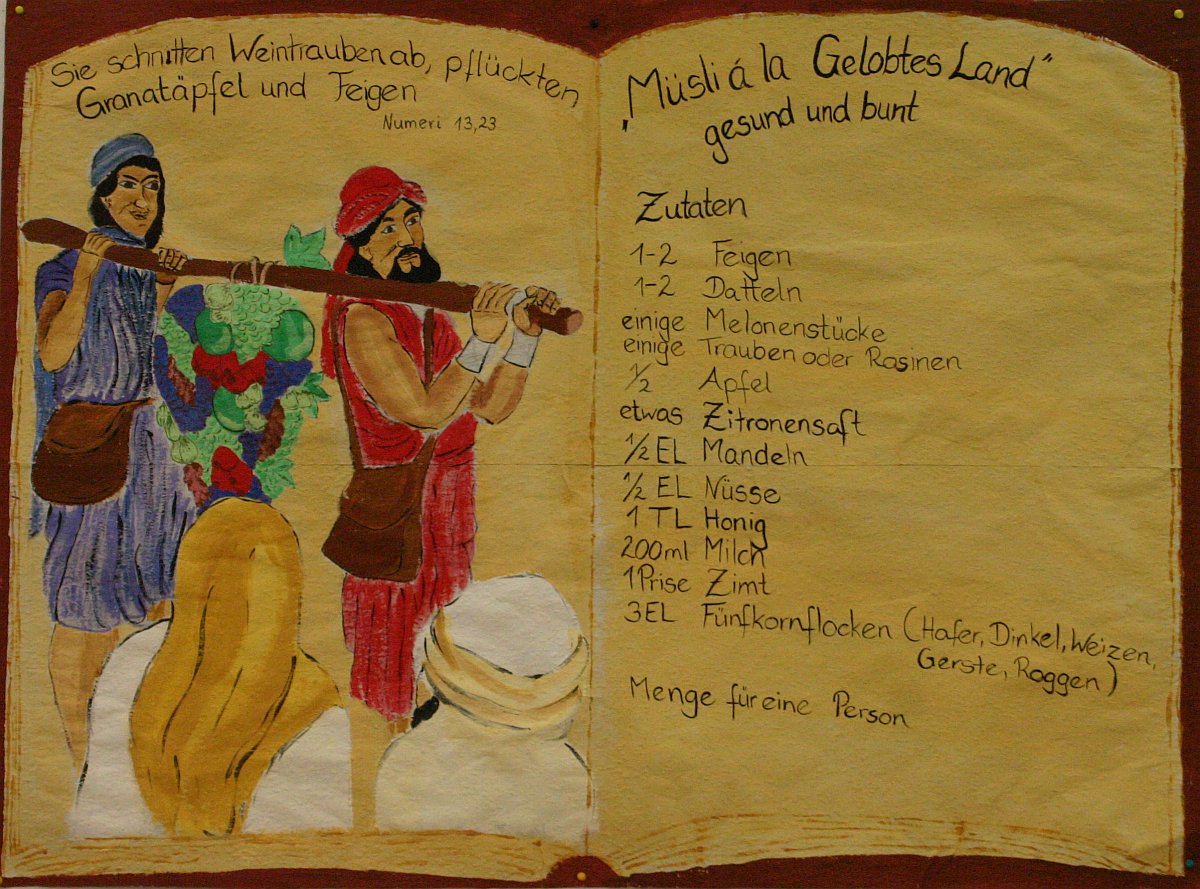 Sie schnitten Weintrauben ab, pflückten
Granatäpfel und Feigen
Numeri 13,23
„Müsli á la Gelobtes Land“
gesund und bunt
Zutaten
1-2 Feigen
1-2 Datteln
einige Melonenstücke
einige Trauben oder Rosinen
1/2 Apfel
etwas Zitronensaft
1/2 EL Mandeln
1/2 EL Nüsse
1 TL Honig
200ml Milch
1 Prise Zimt
3EL Fünfkornflocken (Hafer, Dinkel, Weizen,
Gerste, Roggen)
Menge für eine Person